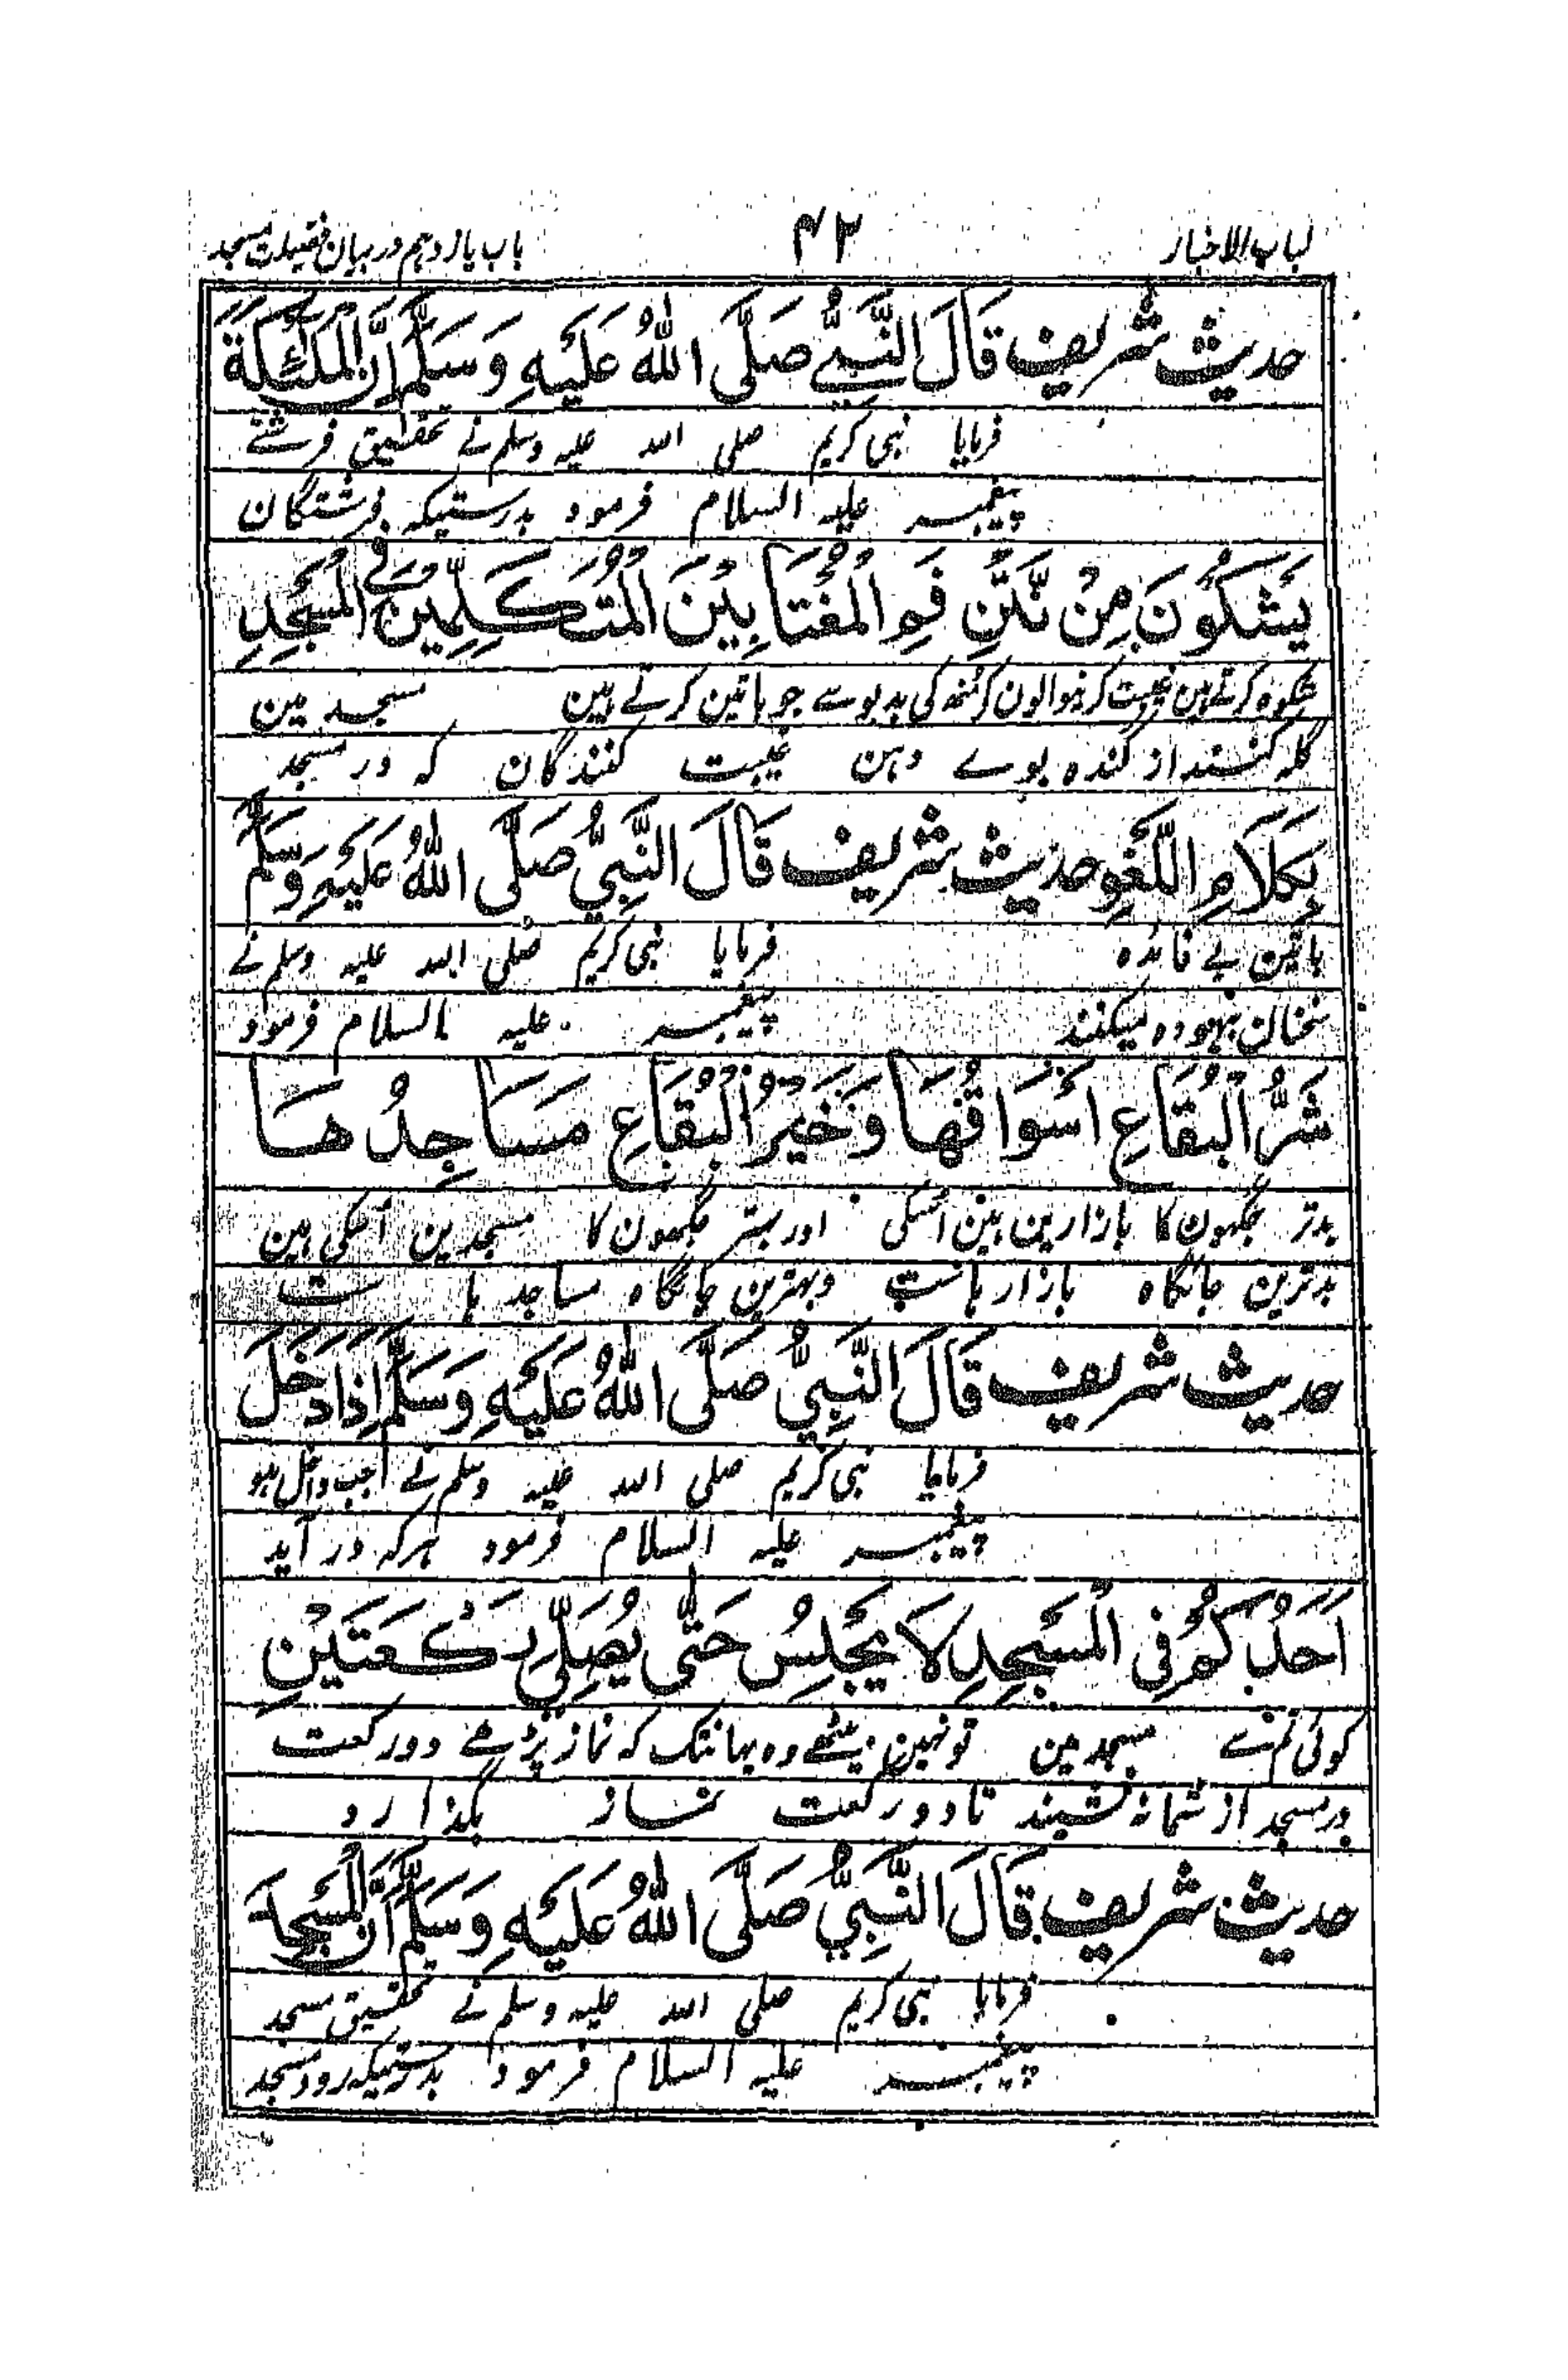 لباب الاخبار ۴۲ باب یازدہم در بیان فضیلت مسجد
حدیث شریف قَالَ النَّبِيُّ صَلَّى اللهُ عَلَيْهِ وَسَلَّمَ اِنَّ الْمَلٰٓئِكَةَ
فرمایا نبی کریم صلی اللہ علیہ وسلم نے تحقیق فرشتے
پیغمبر علیہ السلام فرمود بدرستیکہ فرشتگان
يَشْكُوْنَ مِنْ نَتْنِ فَمِ الْمُغْتَابِيْنَ الْمُتَكَلِّمِيْنَ فِي الْمَسْجِدِ
شکوہ کرتے ہین غیبت کرنیوالون کے منہ کی بدبو سے جو باتین کرتے ہین مسجد مین
گلہ کنند از گندہ بوے دہن غیبت کنندگان کہ در مسجد
بِكَلَامِ اللَّغْوِ حدیث شریف قَالَ النَّبِيُّ صَلَّى اللهُ عَلَيْهِ وَسَلَّمَ
باتین بے فائدہ فرمایا نبی کریم صلی اللہ علیہ وسلم نے
سخنان بیہودہ میکنند پیغمبر علیہ السلام فرمود
شَرُّ الْبُقَاعِ اَسْوَاقُهَا وَخَيْرُ الْبُقَاعِ مَسَاجِدُهَا
بدتر جگہون کا بازارین ہین اسکی اور بہتر جگہون کا مسجدین اسکی ہین
بدترین جائگاہ بازارہاست وبہترین جائگاہ مساجدہاست
حدیث شریف قَالَ النَّبِيُّ صَلَّى اللهُ عَلَيْهِ وَسَلَّمَ اِذَا دَخَلَ
فرمایا نبی کریم صلی اللہ علیہ وسلم نے جب داخل ہو
پیغمبر علیہ السلام فرمود ہرکہ در آید
اَحَدُكُمْ فِي الْمَسْجِدِ لَا يَجْلِسُ حَتّٰى يُصَلِّيَ رَكْعَتَيْنِ
کوئی تم سے مسجد مین تو نہین بیٹھے وہ یہانتک کہ نماز پڑھے دو رکعت
در مسجد از شما نہ نشیند تا دو رکعت نماز بگذارد
حدیث شریف قَالَ النَّبِيُّ صَلَّى اللهُ عَلَيْهِ وَسَلَّمَ اِنَّ الْمَسْجِدَ
فرمایا نبی کریم صلی اللہ علیہ وسلم نے تحقیق مسجد
پیغمبر علیہ السلام فرمود بدرستیکہ مسجد